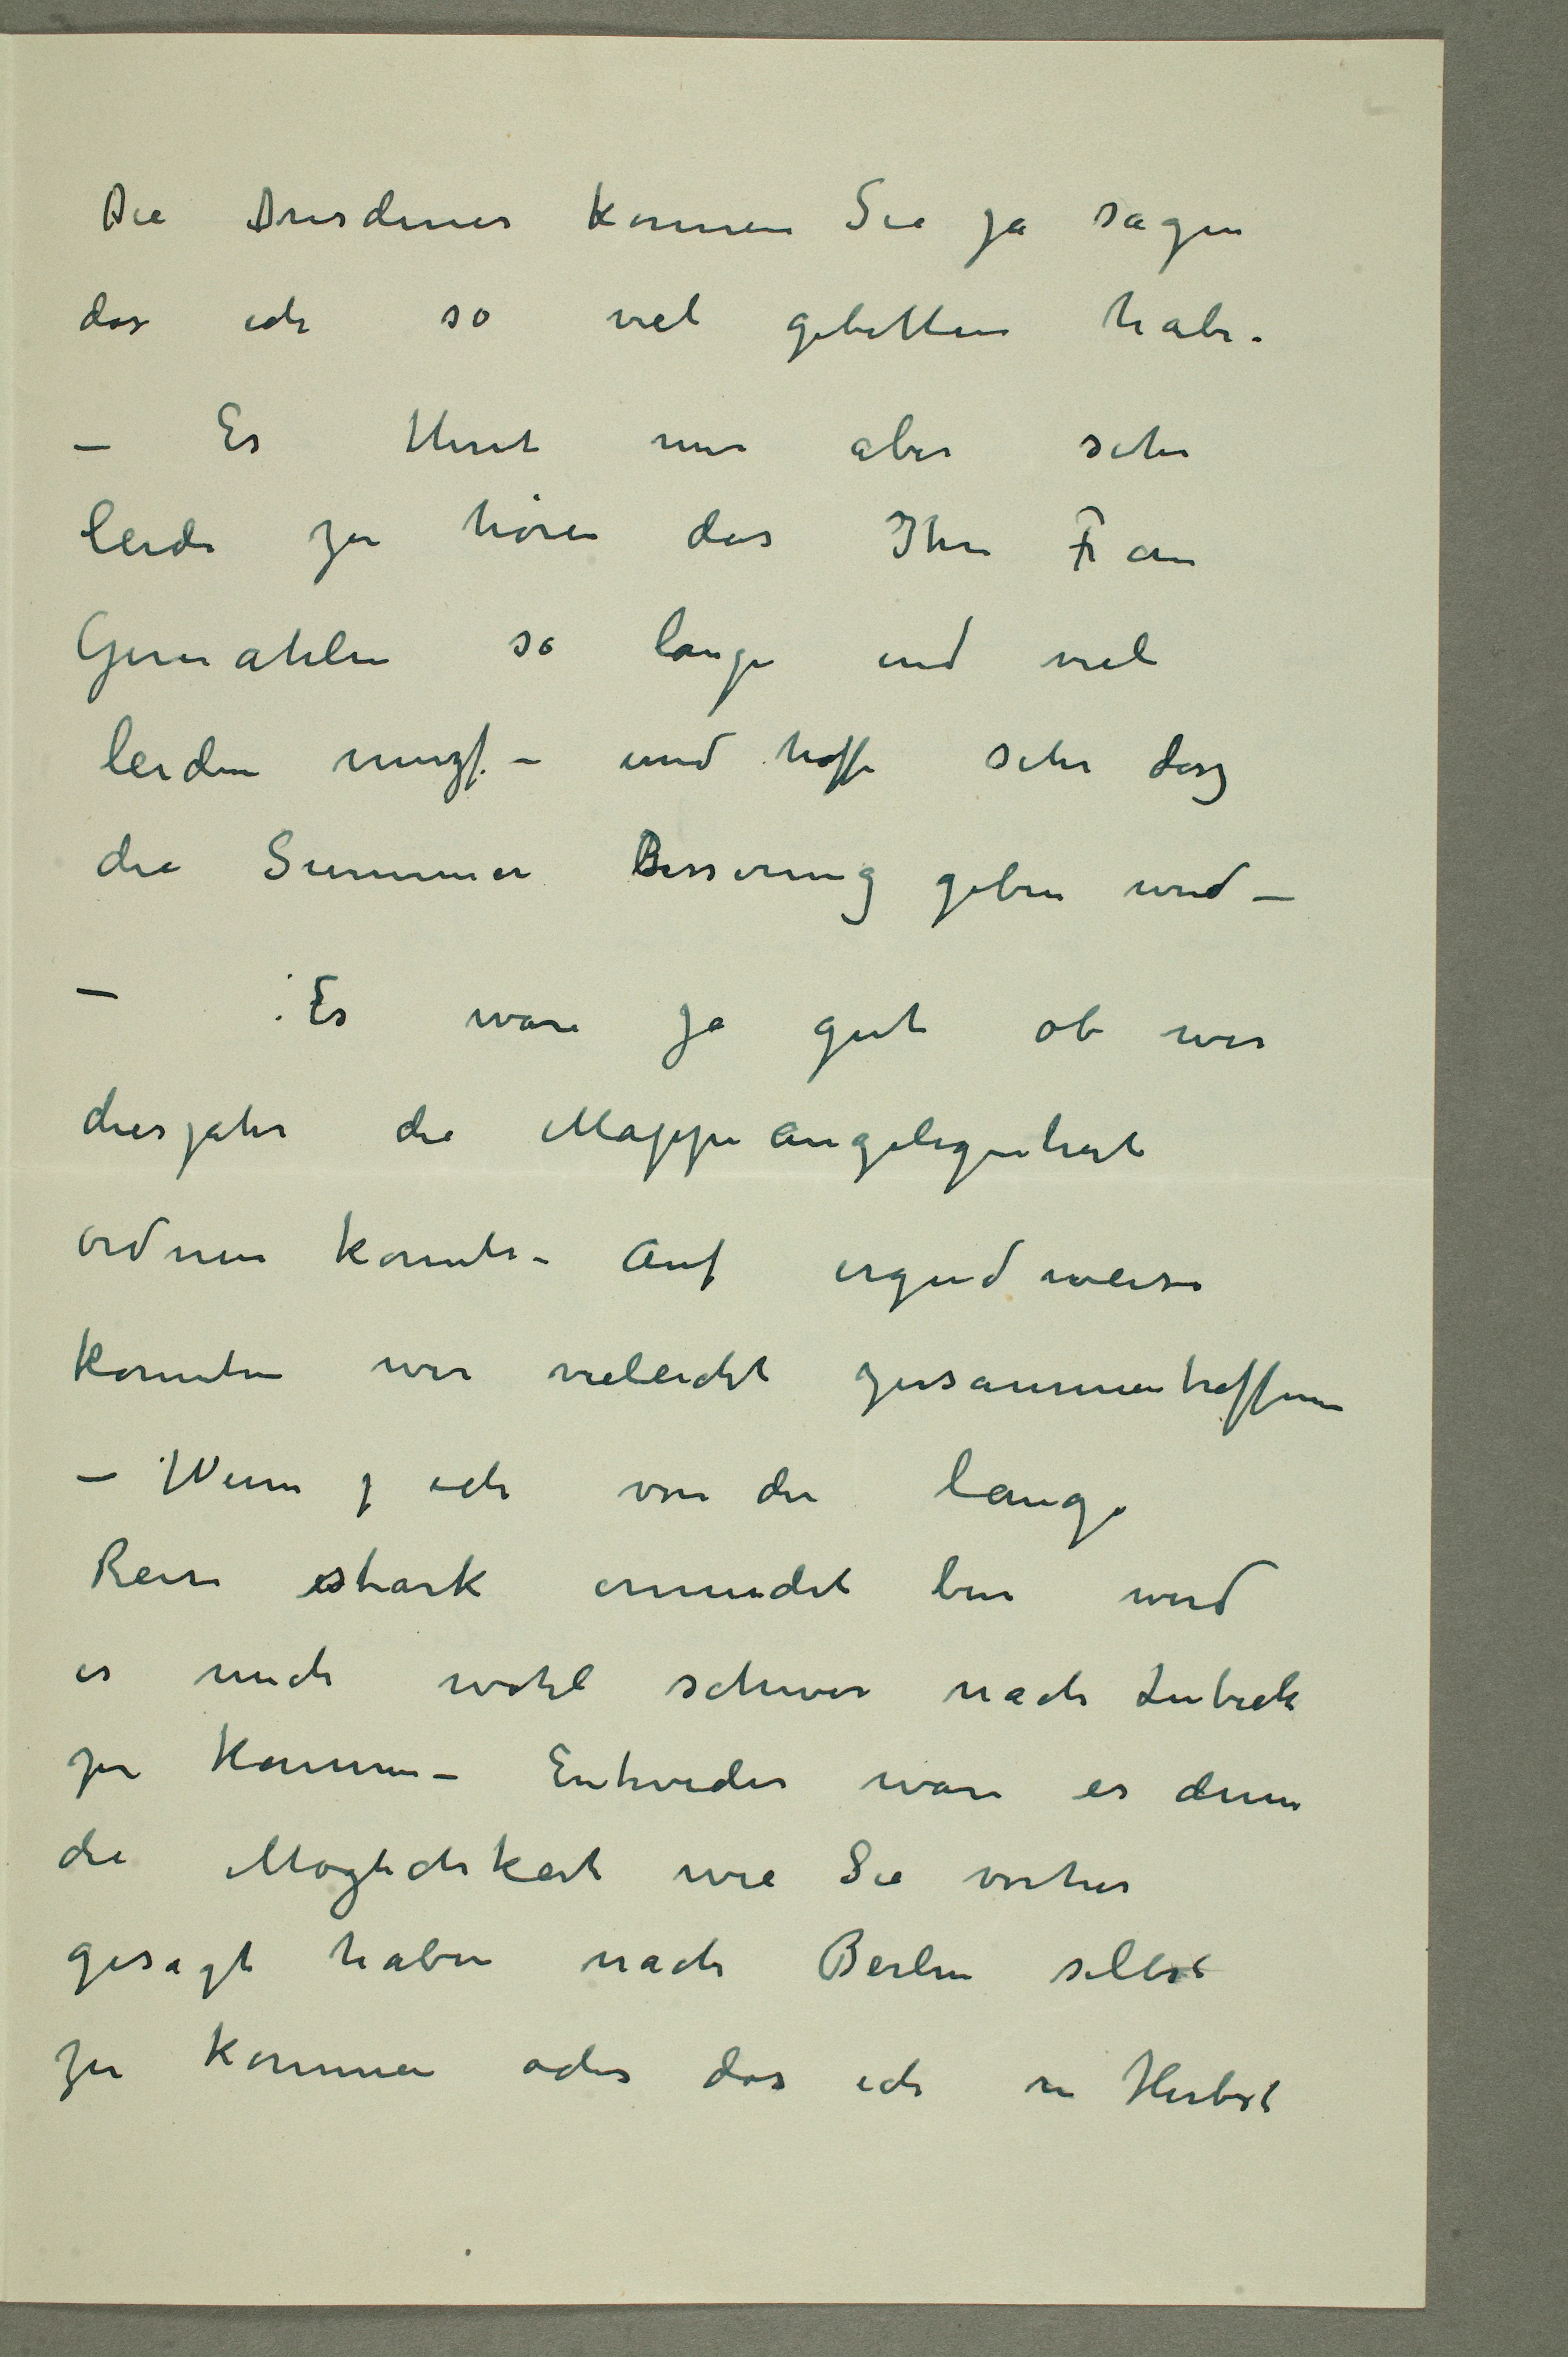 Die Dresdener konnen Sie ja sagen
das ich so viel gebetten habe.
– Es theut mir aber sehr
leide zu hören das Ihre Frau
Gemahlin so lange und viel
leiden muzs. – und hoffe sehr dasz
die Summer Besserung geben wird –
– Es ware ja gut ob wir
diesjahr die Mappeangelegenheit
ordnen konnte – Auf irgend weise
konnten wir vieleicht zusammentreffen
– Wenn ich von der lange
Reise stark ermudet bin wird
es mich wohl schwer nach Lubeck
zu kommen – Entweder ware es denn
die Moglichkeit wie Sie vorher
gesagt haben nach Berlin selbst
zu kommen oder das ich in Herbst